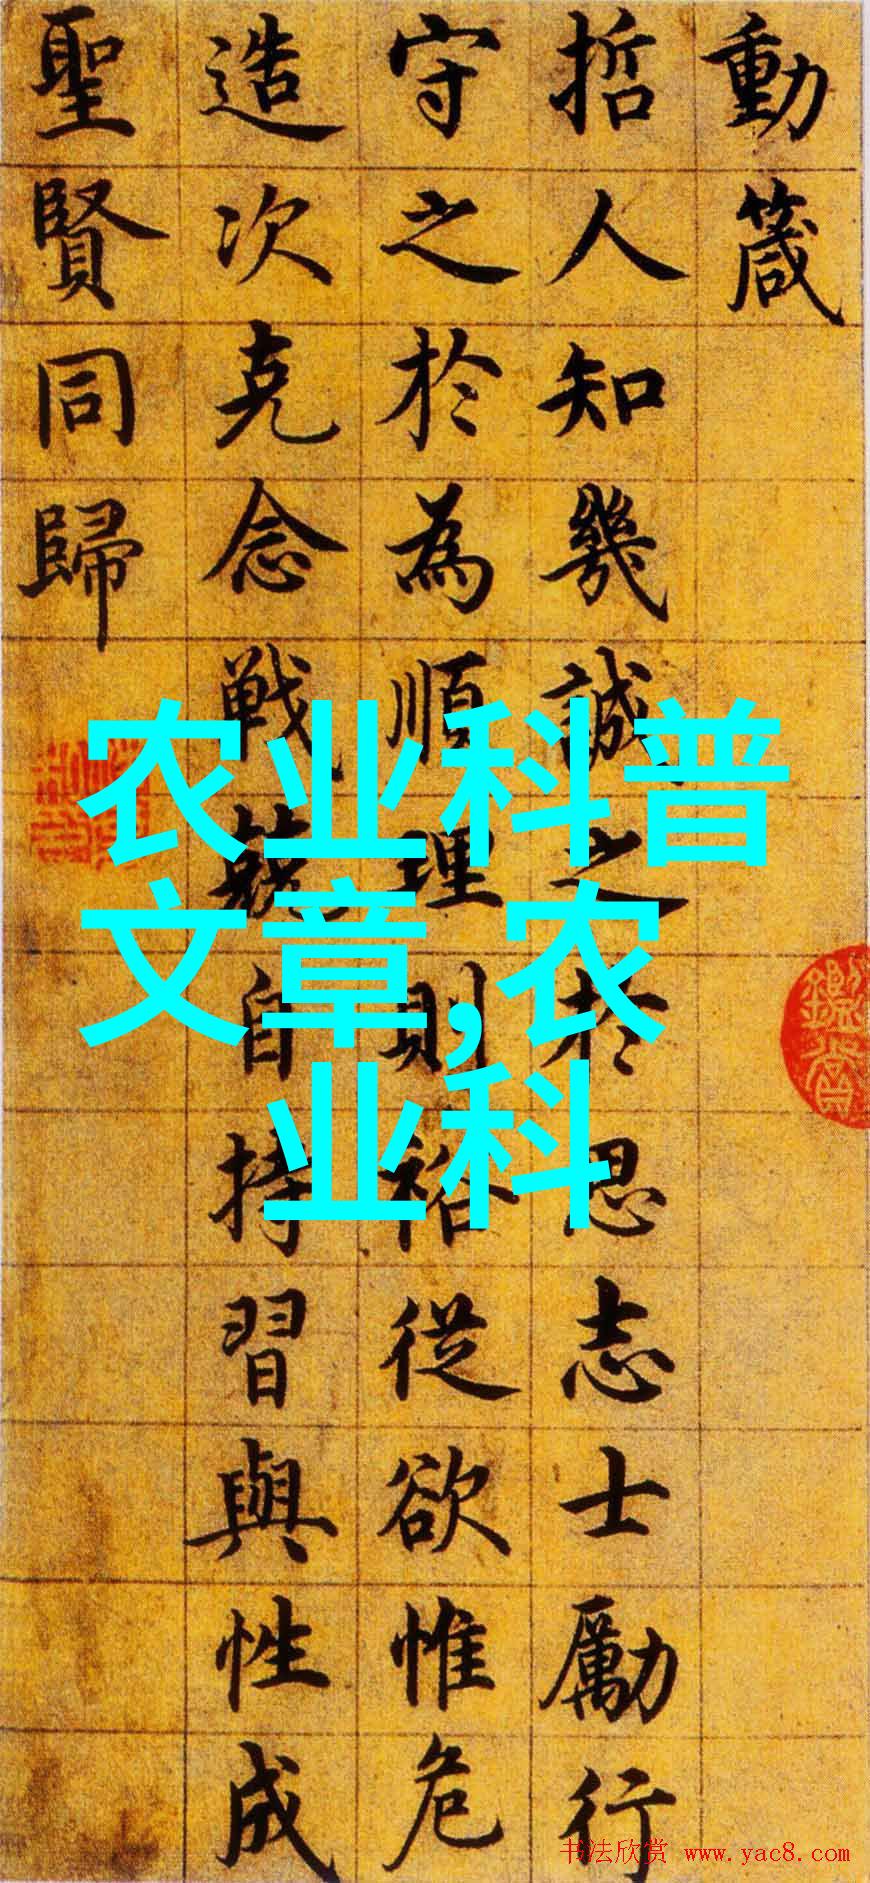 動箴
哲人知幾誠之於思志士勵行
守之於為順理則裕從欲惟危
造次克念戦兢自持習與性成
聖賢同歸
农业科普
文章,农
业科
书法欣赏 www.yac8.com